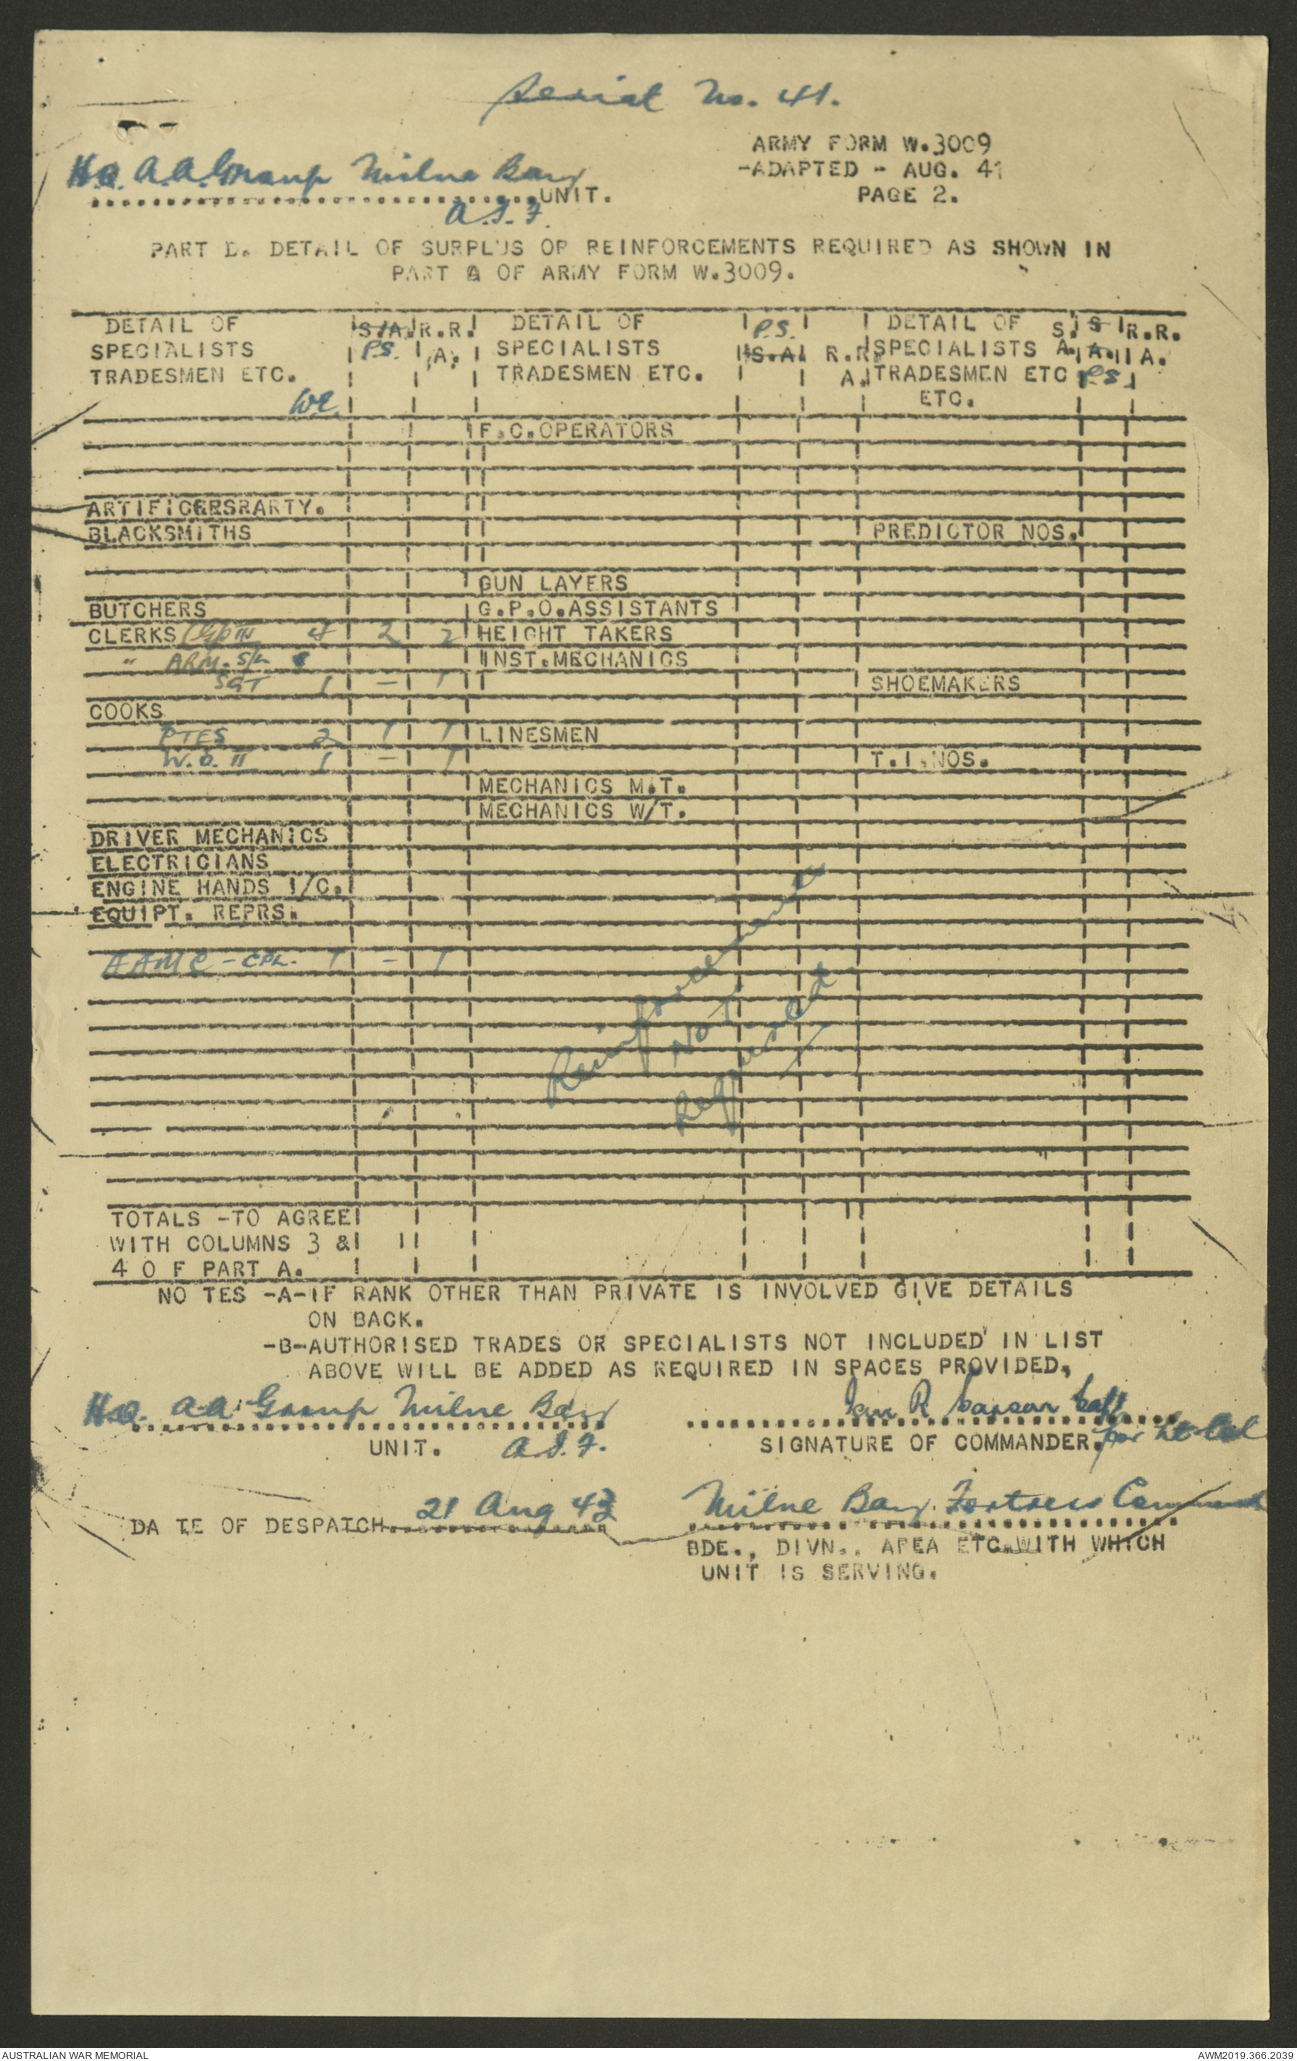 Serial No. 41.
ARMY FORM W.3009
-ADAPTED - AUG. 41
PAGE 2.
H.Q. A.A. Group Milne Bay UNIT.
A.I.F.
PART D. DETAIL OF SURPLUS OR REINFORCEMENTS REQUIRED AS SHOWN IN
PART A OF ARMY FORM W.3009.
DETAIL OF SPECIALISTS TRADESMEN ETC. WE. S/A P.S. R.R. A. DETAIL OF SPECIALISTS TRADESMEN ETC. P.S. S.A. R.R. A. DETAIL OF SPECIALISTS TRADESMEN ETC ETC. S. A. S A. P.S. R.R. A.
F.C.OPERATORS
ARTIFICERSRARTY.
BLACKSMITHS PREDICTOR NOS.
GUN LAYERS
BUTCHERS G.P.O.ASSISTANTS
CLERKS 4 2 2 HEIGHT TAKERS
" INST.MECHANICS
SGT 1 - 1 SHOEMAKERS
COOKS
PTES 2 1 1 LINESMEN
W.O. II 1 - 1 T.I.NOS.
MECHANICS M.T.
MECHANICS W/T.
DRIVER MECHANICS
ELECTRICIANS
ENGINE HANDS I/C.
EQUIPT. REPRS.
AAMC - CPL. 1 - 1
Reinforcements
NOT
Required
TOTALS -TO AGREE
WITH COLUMNS 3 &
4 O F PART A.
NO TES -A-IF RANK OTHER THAN PRIVATE IS INVOLVED GIVE DETAILS
ON BACK.
-B-AUTHORISED TRADES OR SPECIALISTS NOT INCLUDED IN LIST
ABOVE WILL BE ADDED AS REQUIRED IN SPACES PROVIDED,
H.Q. AA Group Milne Bay Ian R Carson Capt
UNIT. A.I.F. SIGNATURE OF COMMANDER. for Lt Col
DA TE OF DESPATCH 21 Aug 43 Milne Bay Fortress Command
BDE., DIVN., AREA ETC.WITH WHICH
UNIT IS SERVING.
AUSTRALIAN WAR MEMORIAL AWM2019.366.2039